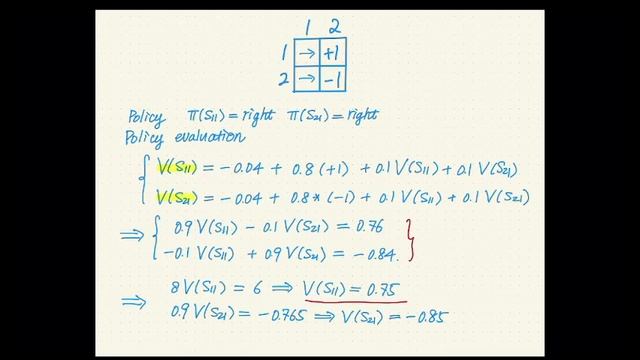 1 2
1 → +1
2 → -1
Policy π(S₁₁)=right π(S₂₁)=right
Policy evaluation
V(S₁₁) = -0.04 + 0.8 (+1) + 0.1 V(S₁₁) + 0.1 V(S₂₁)
V(S₂₁) = -0.04 + 0.8* (-1) + 0.1 V(S₁₁) + 0.1 V(S₂₁)
⇒ { 0.9 V(S₁₁) - 0.1 V(S₂₁) = 0.76
-0.1 V(S₁₁) + 0.9 V(S₂₁) = -0.84. }
8 V(S₁₁) = 6 ⇒ V(S₁₁) = 0.75
⇒ 0.9 V(S₂₁) = -0.765 ⇒ V(S₂₁) = -0.85